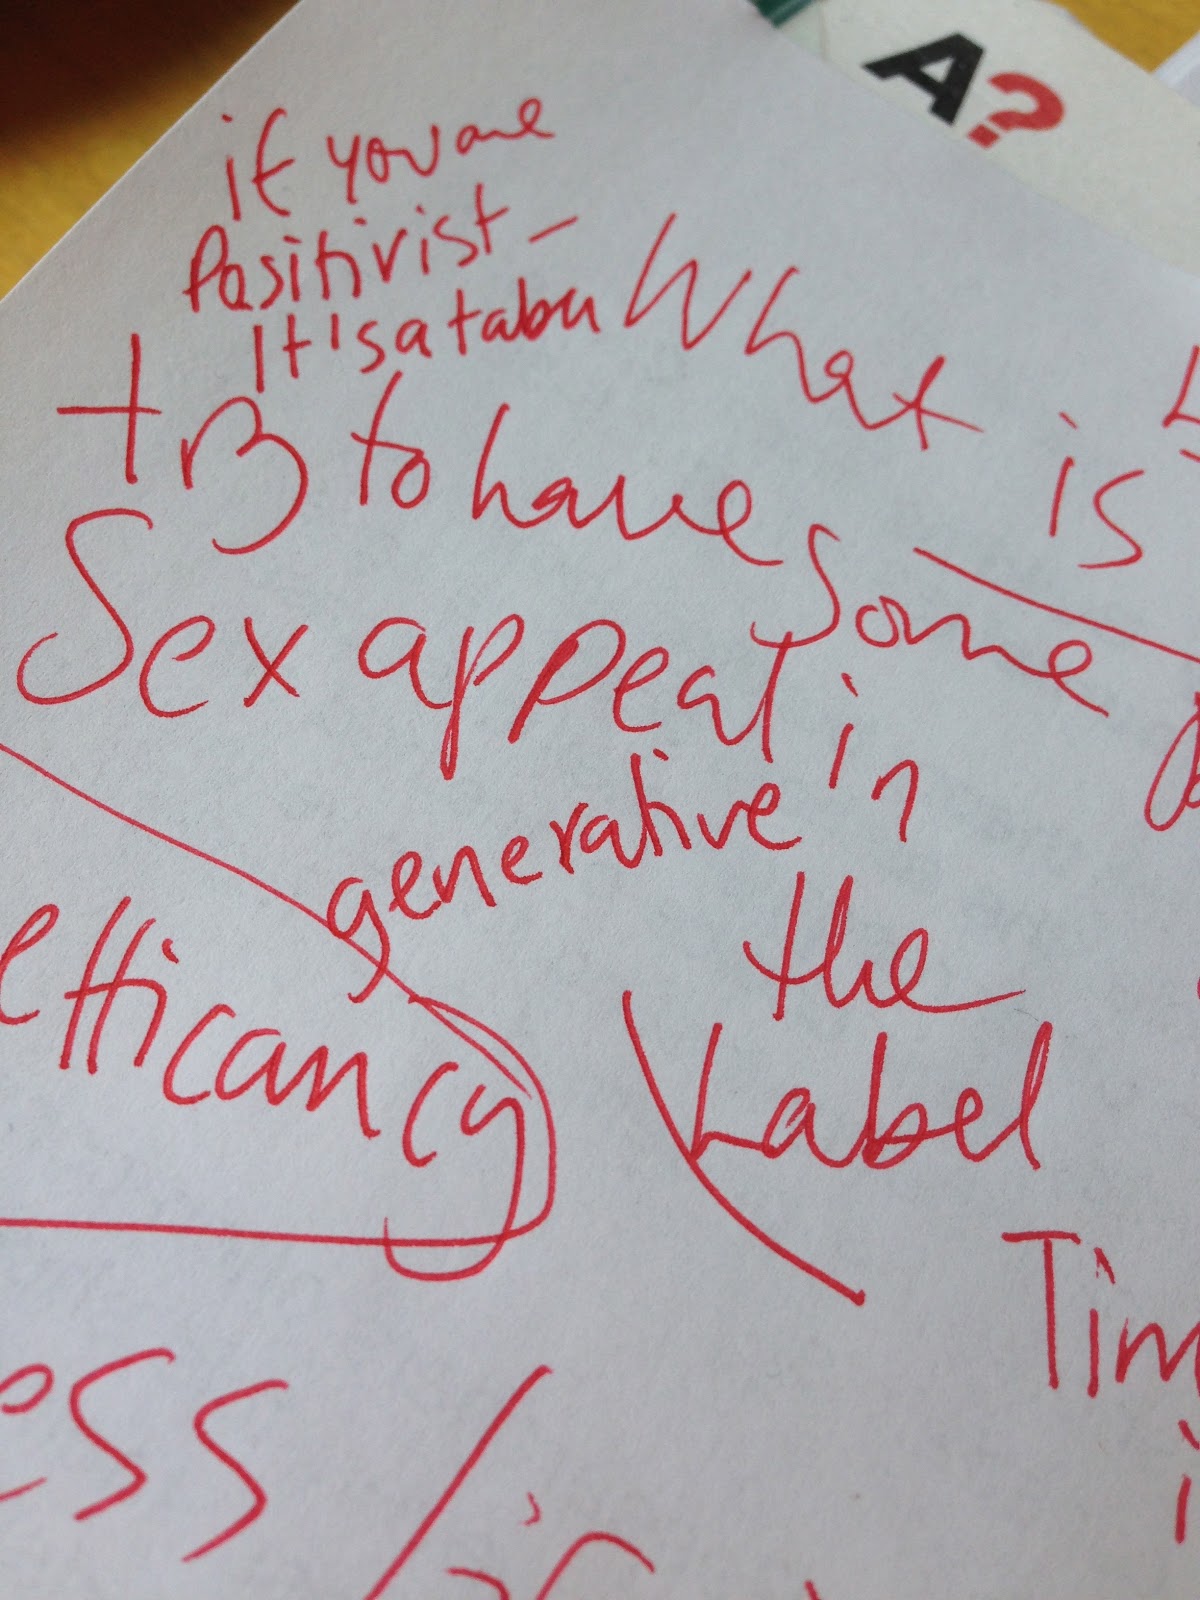 A?
if you are
Positivist -
It's a tabu
What is
try to have some
Sex appeal in
generative
the
Label
efficancy
Tim
ess /